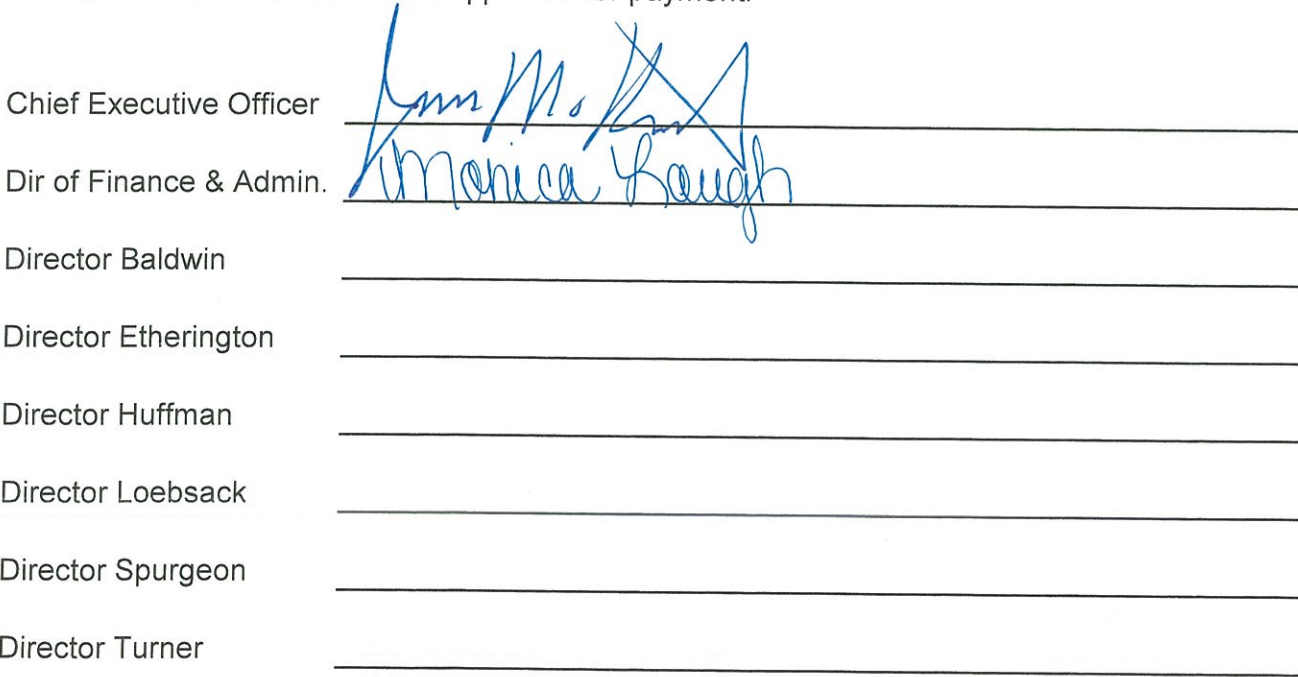 payment.
Chief Executive Officer
Dir of Finance & Admin. Monica Lough
Director Baldwin
Director Etherington
Director Huffman
Director Loebsack
Director Spurgeon
Director Turner